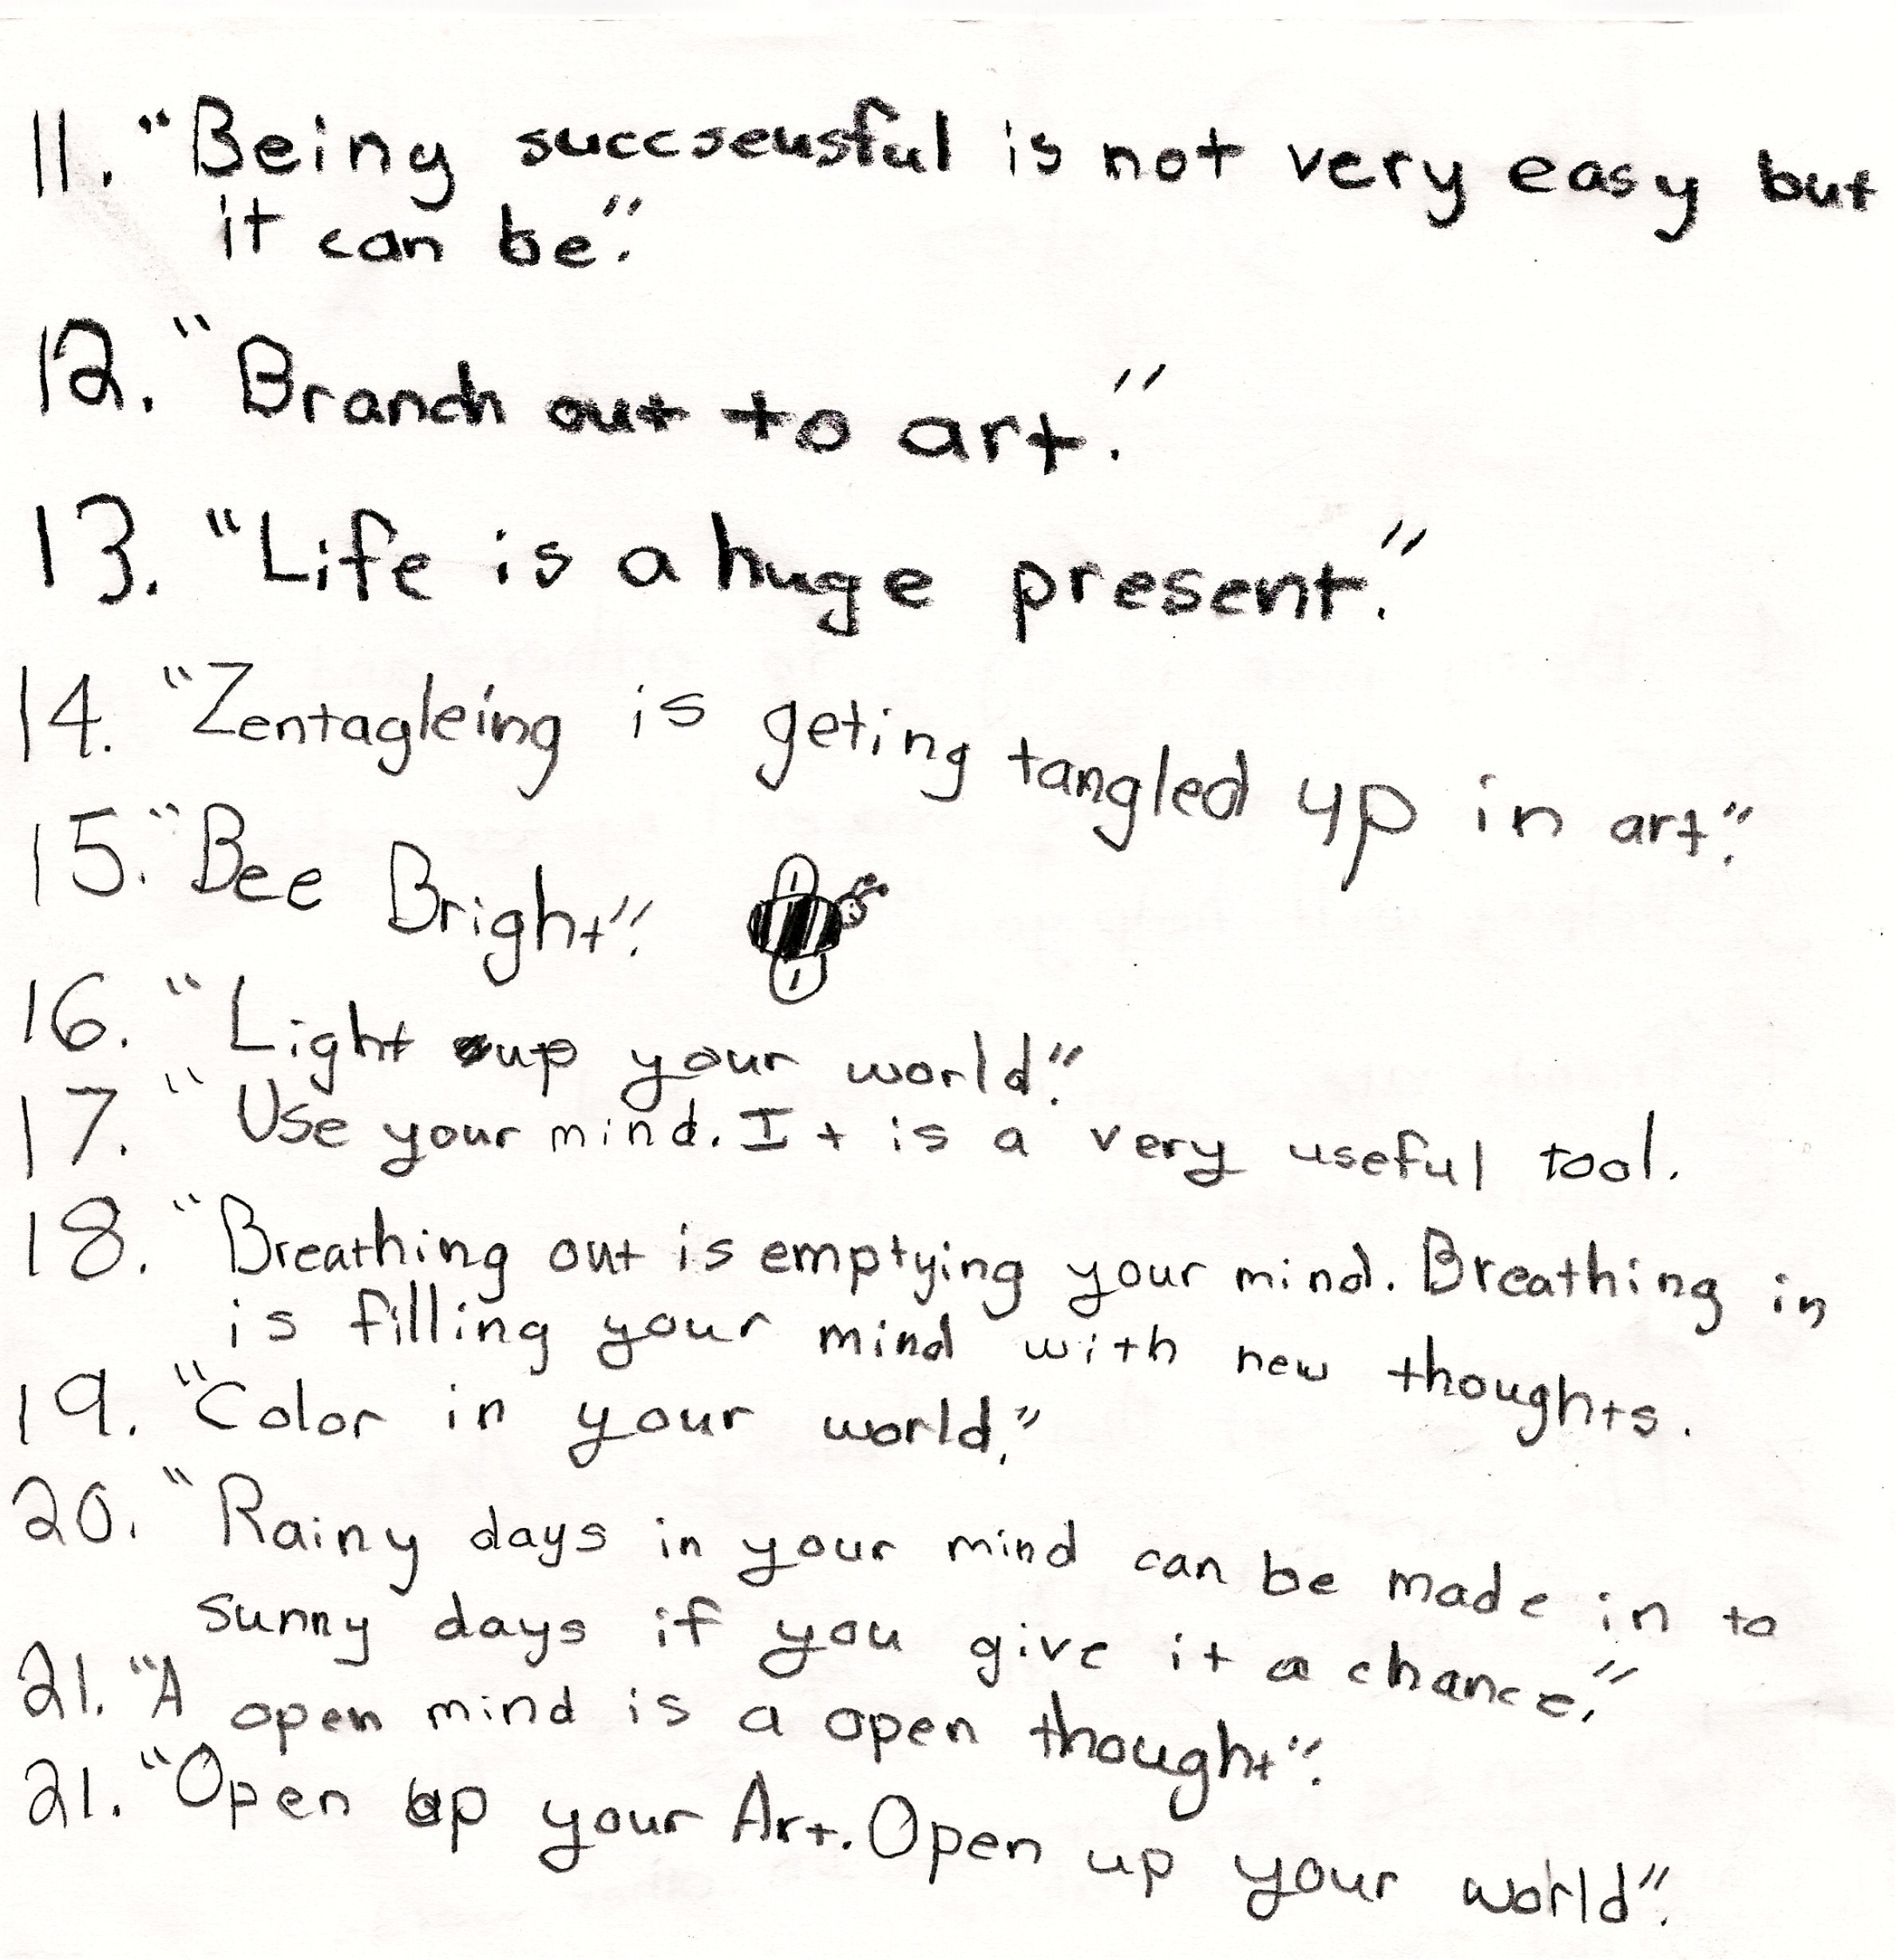 11. "Being succseusful is not very easy but
it can be".
12. "Branch out to art."
13. "Life is a huge present."
14. "Zentagleing is geting tangled up in art".
15. "Bee Bright".
16. "Light up your world".
17. "Use your mind. It is a very useful tool.
18. "Breathing out is emptying your mind. Breathing in
is filling your mind with new thoughts.
19. "Color in your world."
20. "Rainy days in your mind can be made in to
sunny days if you give it a chance."
21. "A open mind is a open thought".
21. "Open up your Art. Open up your world".